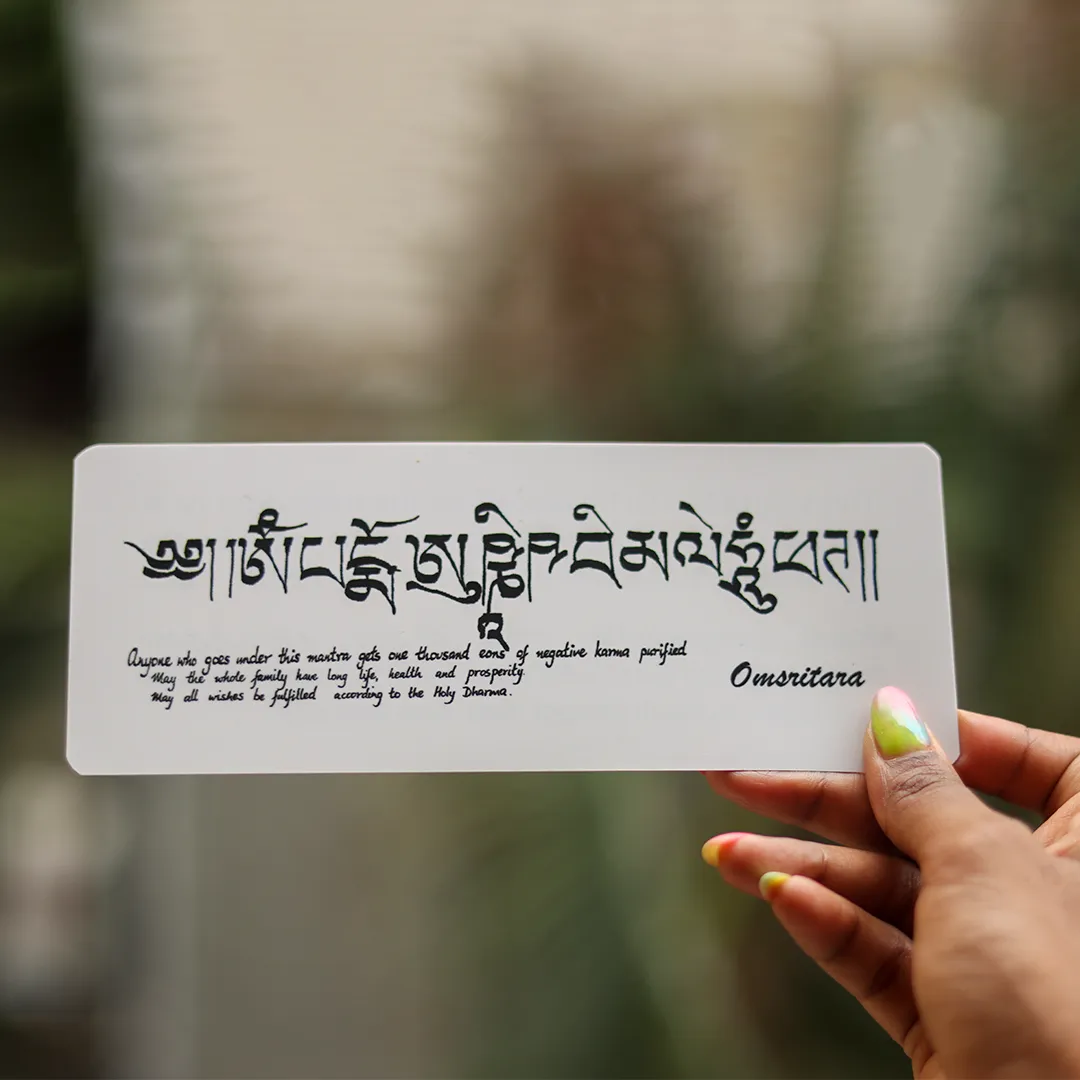 ༄༅། །ཨོཾ་པདྨོ་ཨུཥྞཱིཥ་བིམལེ་ཧཱུྃ་ཕཊ།།
Anyone who goes under this mantra gets one thousand eons of negative karma purified
May the whole family have long life, health and prosperity.
May all wishes be fulfilled according to the Holy Dharma.
Omsritara